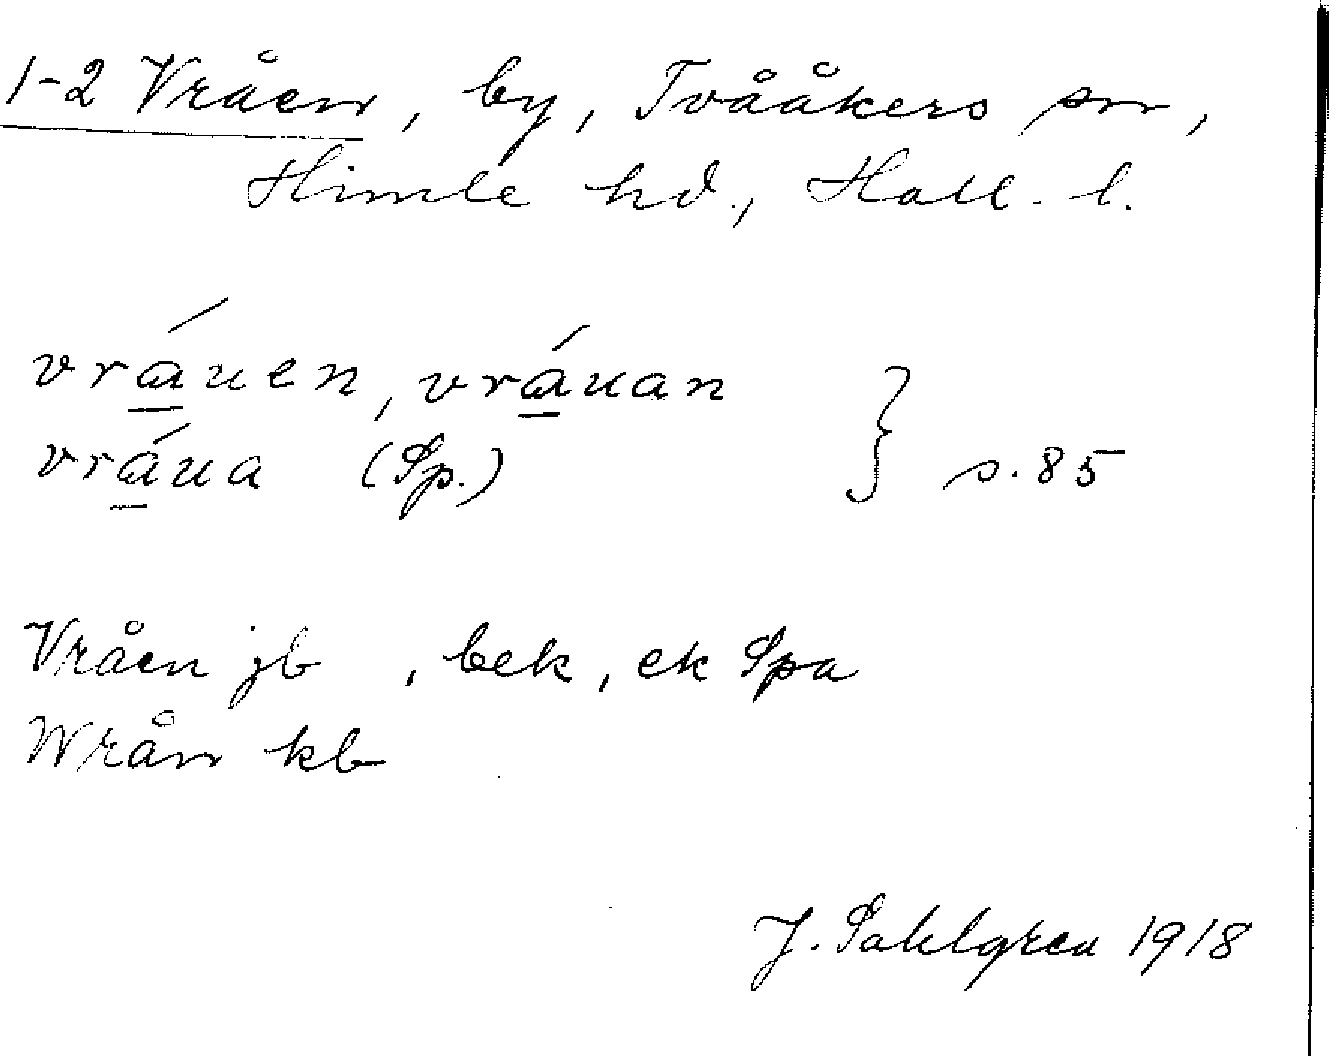 1-2 Vråen, by, Tvååkers sn,
Himle hd., Hall. l.
vrá̱uen, vrá̱uan
vrá̱ua (Sp.) } s. 85
Vråen jb , bek, ek Spa
Wrån kb
J. Sahlgren 1918